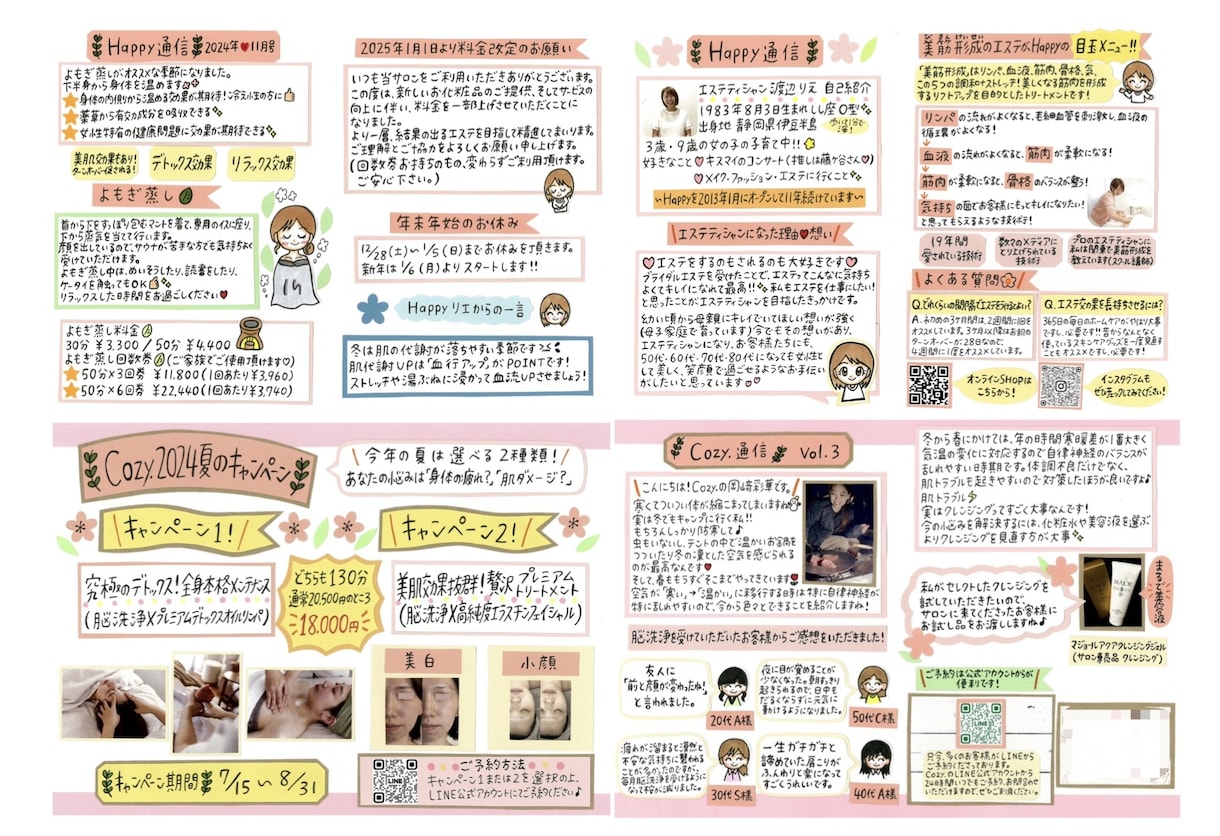 Happy通信 2024年♥11月号
よもぎ蒸しがオススメな季節になりました。
下半身から身体を温めます
身体の内側から温める効果が期待!冷え性の方に
薬草から有効成分を吸収できる
女性特有の健康問題に効果が期待できる
美肌効果もあり!
ターンオーバー促される!
デトックス効果
リラックス効果
よもぎ蒸し
首から下をすっぽり包むマントを着て、専用のイスに座り、
下から蒸気を当てて行います。
顔を出しているので、サウナが苦手な方でも気持ちよく
受けていただけます。
よもぎ蒸し中は、めいそうしたり、読書をしたり、
ケータイを触ってもOK
リラックスした日時間をお過ごしください♥
よもぎ蒸し料金
30分 ¥3,300/50分 ¥4,400
よもぎ蒸し回数券(ご家族でご使用頂けます♡)
★50分×3回券 ¥11,800(1回あたり¥3,960)
★50分×6回券 ¥22,440(1回あたり¥3,740)
2025年1月1日より料金改定のお願い
いつも当サロンをご利用いただきありがとうございます。
この度は、新しいお化粧品のご提供、そしてサービスの
向上に伴い、料金を一部値上げさせていただくことに
なりました。
より一層、結果の出るエステを目指して精進してまいります。
ご理解とご協力をよろしくお願い申し上げます。
(回数券お持ちのもの、変わらずご利用頂けます。
ご安心下さい。)
年末年始のお休み
12/28(土)〜1/5(日)までお休みを頂きます。
新年は1/6(月)よりスタートします!!
Happyリエからの一言
冬は肌の代謝が落ちやすい季節です
肌代謝UPは「血行アップ」がPOINTです!
ストレッチや湯ぶねに浸かって血流UPさせましょう!
Happy通信
エステティシャン渡辺りえ 自己紹介
1983年8月3日生まれ しし座 O型
出身地 静岡県伊豆半島
歩いて1分で海!
3歳・9歳の女の子の子育て中!!
好きなこと♥キスマイのコンサート(推しは藤ヶ谷さん♡)
♡メイク・ファッション・エステに行くこと
〜Happyを2013年1月にオープンして11年続けています〜
エステティシャンになった理由♥想い
♡エステをするのもされるのも大好きです♡
ブライダルエステを受けたことで、エステってこんなに気持ち
よくてキレイになれて最高!!私もエステを仕事にしたい!
と思ったことがエステティシャンを目指したきっかけです。
幼い頃から母親にキレイでいてほしい想いが強く
(母子家庭で育っています)今でもその想いがあり、
エステティシャンになり、お客様たちにも、
50代・60代・70代・80代になっても女性と
して美しく、笑顔で過ごせるようなお手伝い
がしたいと思っています♡♡
美筋形成のエステがHappyの目玉メニュー!!
びきんけいせい
「美筋形成」はリンパ、血液、筋肉、骨格、気、
この5つの調和ストレッチ!美しくなる筋肉を形成
するリフトアップを目的としたトリートメントです!
リンパの流れがよくなると、毛細血管を刺激し、血液の
循環がよくなる!
血液の流れがよくなると、筋肉が柔軟になる!
筋肉が柔軟になると、骨格のバランスが整う!
気持ちの面でお客様にもっとキレイになりたい!
と思ってもらえるような技術デす!
19年間
愛されている技術
数々のメディアに
とり上げられている
技術
プロのエステティシャンに
私は関東で美筋形成を
教えています(スクール講師)
よくある質問
Q.どれくらいの間隔でエステをうけるとよい?
A.初めの3ヶ月間は、2週間に1回を
オススメしています。3ヶ月以降はお肌の
ターンオーバーが28日なので、
4週間に1度をオススメしています。
Q.エステ効果を長持ちさせるには?
365日の毎日のホームケアがやはり大事
ですし、必要です!!昔からなんとなく
使っているスキンケアグッズを一度見直す
こともオススメですし、必要です!
オンラインSHOPは
こちらから!
インスタグラムも
ぜひチェックしてみてください!
Cozy.2024夏のキャンペーン
今年の夏は選べる2種類!
あなたの悩みは「身体の疲れ?」「肌ダメージ?」
キャンペーン1!
キャンペーン2!
究極のデトックス!全身本格メンテナンス
(脳洗浄×プレミアムデトックスオイルリンパ)
どちらも130分
通常20,500円のところ
18,000円
美肌効果抜群!贅沢プレミアム
トリートメント
(脳洗浄×高純度エラスチンフェイシャル)
美白
小顔
キャンペーン期間 7/15〜8/31
LINE
ご予約方法
キャンペーン1または2を選択の上、
LINE公式アカウントにてご予約ください♪
Cozy.通信 Vol.3
こんにちは!Cozy.の岡﨑彩華です。
寒くてついつい体が縮こまってしまいますね
実は冬でもキャンプに行く私!!
もちろんしっかり防寒して♪
虫もいないし、テントの中で温かいお鍋を
つついたり冬の凛とした空気を感じられる
のが最高なんです♥
そして、春ももうすぐそこまでやってきています
空気が「寒い」→「温かい」に移行する時は特に自律神経が
特に乱れやすいので、今から色々とできることを紹介しますね!
脳洗浄を受けていただいたお客様からご感想をいただきました!
友人に
「前と顔が変わったね!」
と言われました。
20代A様
夜に目が覚めることが
少なくなった。朝すっきり
起きられるので、日中も
だるくならずに元気に
動けるようになりました。
50代C様
疲れが溜まると漠然と
不安な気持ちに襲われる
ことが多かったのですが、
毎月脳洗浄を受けるように
なって不安が減りました。
30代S様
一生ガチガチと
諦めていた肩こりが
ふんわりと楽になって
すごくうれしいです。
40代A様
冬から春にかけては、年の時間寒暖差が1番大きく
気温の変化に対応するので自律神経のバランスが
乱れやすい時期です。体調不良だけでなく、
肌トラブルも起きやすいので対策したほうが良いですよ♪
肌トラブル
実はクレンジングってすごく大事なんです!
今の小悩みを解決するには、化粧水や美容液を選ぶ
よりクレンジングを見直す方が大事
私がセレクトしたクレンジングを
試していただきたいので、
サロンに来てくださったお客様に
お試し品をお渡ししますね♪
まるで美容液
マジョールアクアクレンジングジェル
(サロン専売品 クレンジング)
ご予約は公式アカウントからが
便利です!
LINE
只今、多くのお客様がLINEから
ご予約くださっております。
Cozy.のLINE公式アカウントから
24時間いつでもご予約、お問合わせ
いただけますので、ぜひご利用ください。